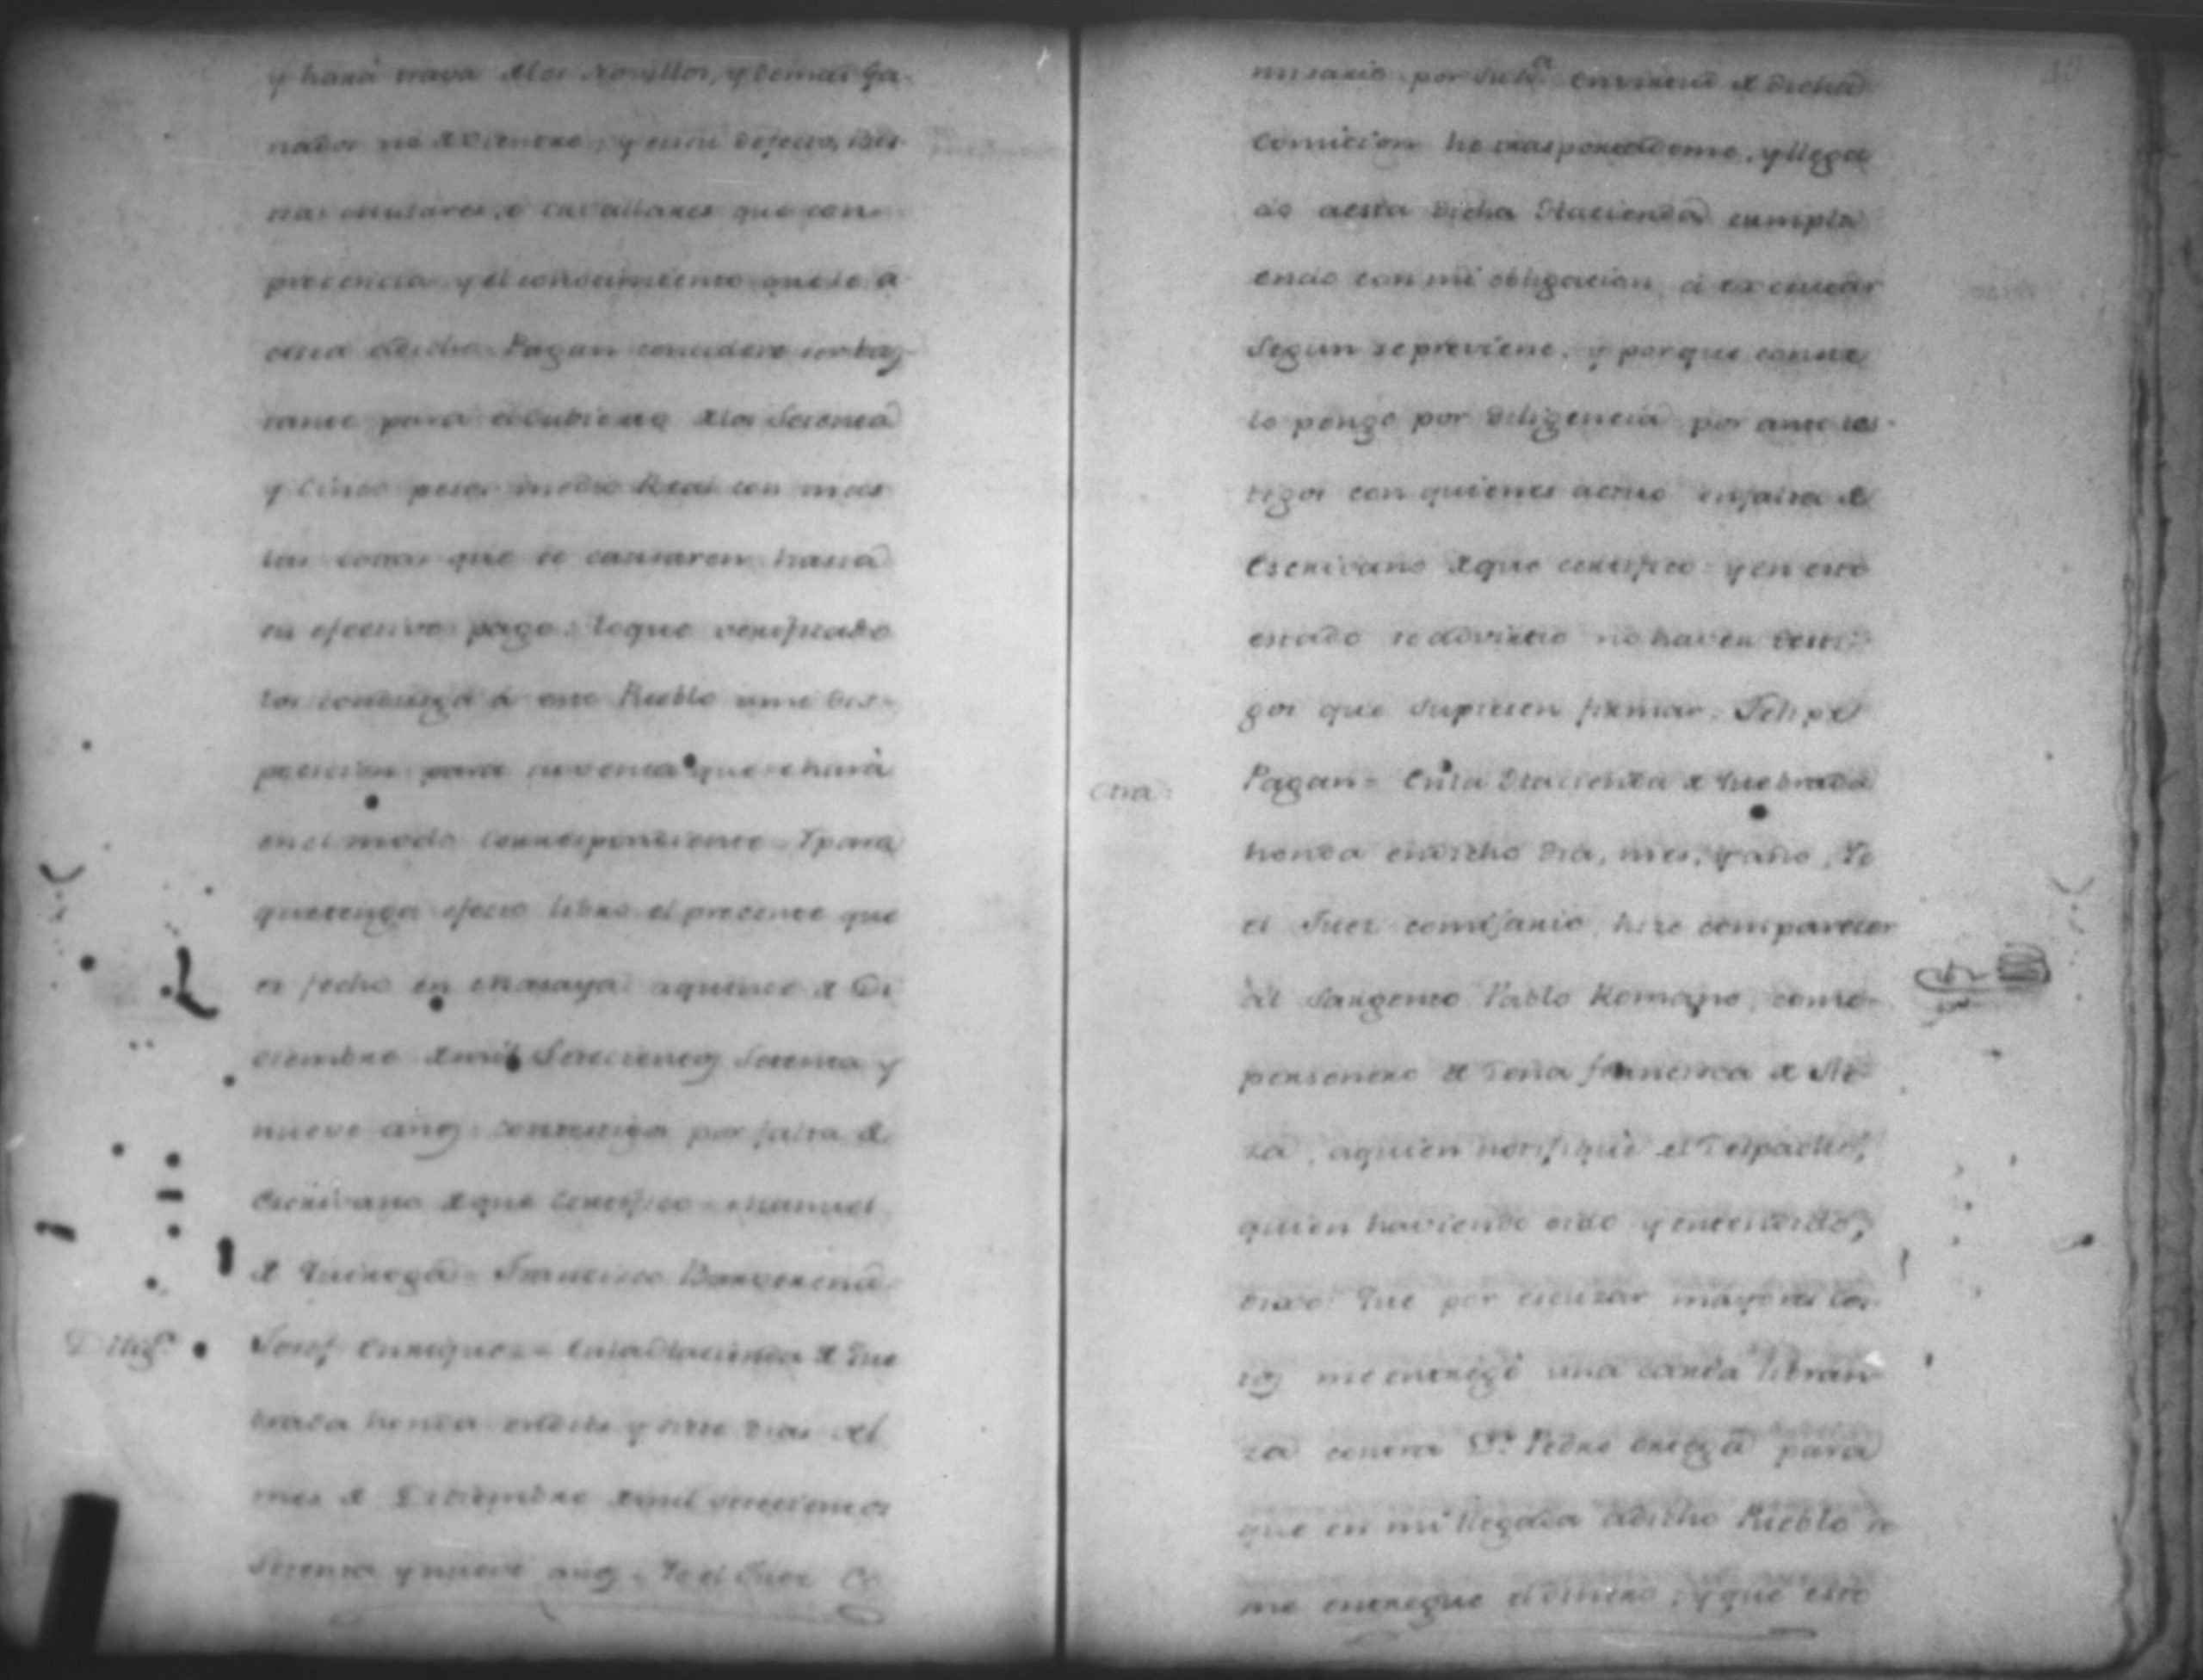 y hará trava de los Novillos, y demas Ga-
nados no de vientre, y en su defecto, bes-
tias mulares, o cavallares que con
precencia y el conocimiento que le a
dicho Pagan concidere ser bas-
tante para el cubierto de los Setenta
y Cinco pesos medio Real con mas
las costas que se causaren hasta
su efectivo pago: lo que verificado
los conduzga á este Pueblo á mi dis-
posicion para su venta que se hará
en el modo Correspondiente. Y para
que tenga efecto libro el precente que
es fecho en Masaya a quince de Di
ciembre de mil Setecientos Setenta y
nueve años, con testigos por falta de
Escrivano de que Certifico = Manuel
de Quiroga = Francisco
Josef Enriquez =
Dilig.a
En la Hacienda de Que
brada honda en dies y siete dias del
mes de Diciembre de mil setecientos
Setenta y nueve años. Yo el Juez Co
misario por en virtud de dicha
Comicion he trasportadome, y llega
do a esta dicha Hacienda cumpli
endo con mi obligacion, á executar
Segun se previene, y porque conste
lo pongo por diligencia por ante tes-
tigos con quienes actuo en falta de
Escrivano de que certifico y en este
estado se advirtio no haver testi-
gos que supiesen firmar. Felipe
Pagan =
Otra:
En la Hacienda de Quebrada
honda en dicho dia, mes, y año, Yo
el Juez comisario, hize comparecer
al Sargento Pablo Romano, como
personero de Doña Francisca de Me-
za, a quien notifiqué el Despacho,
quien haviendo oido y entendido,
dixo: Que por escuzar mayores cos-
tos me entregó una carta libran-
za contra Dn. Pedro Ortega para
que en mi llegada á dicho Pueblo se
me entregue el dinero; y que este